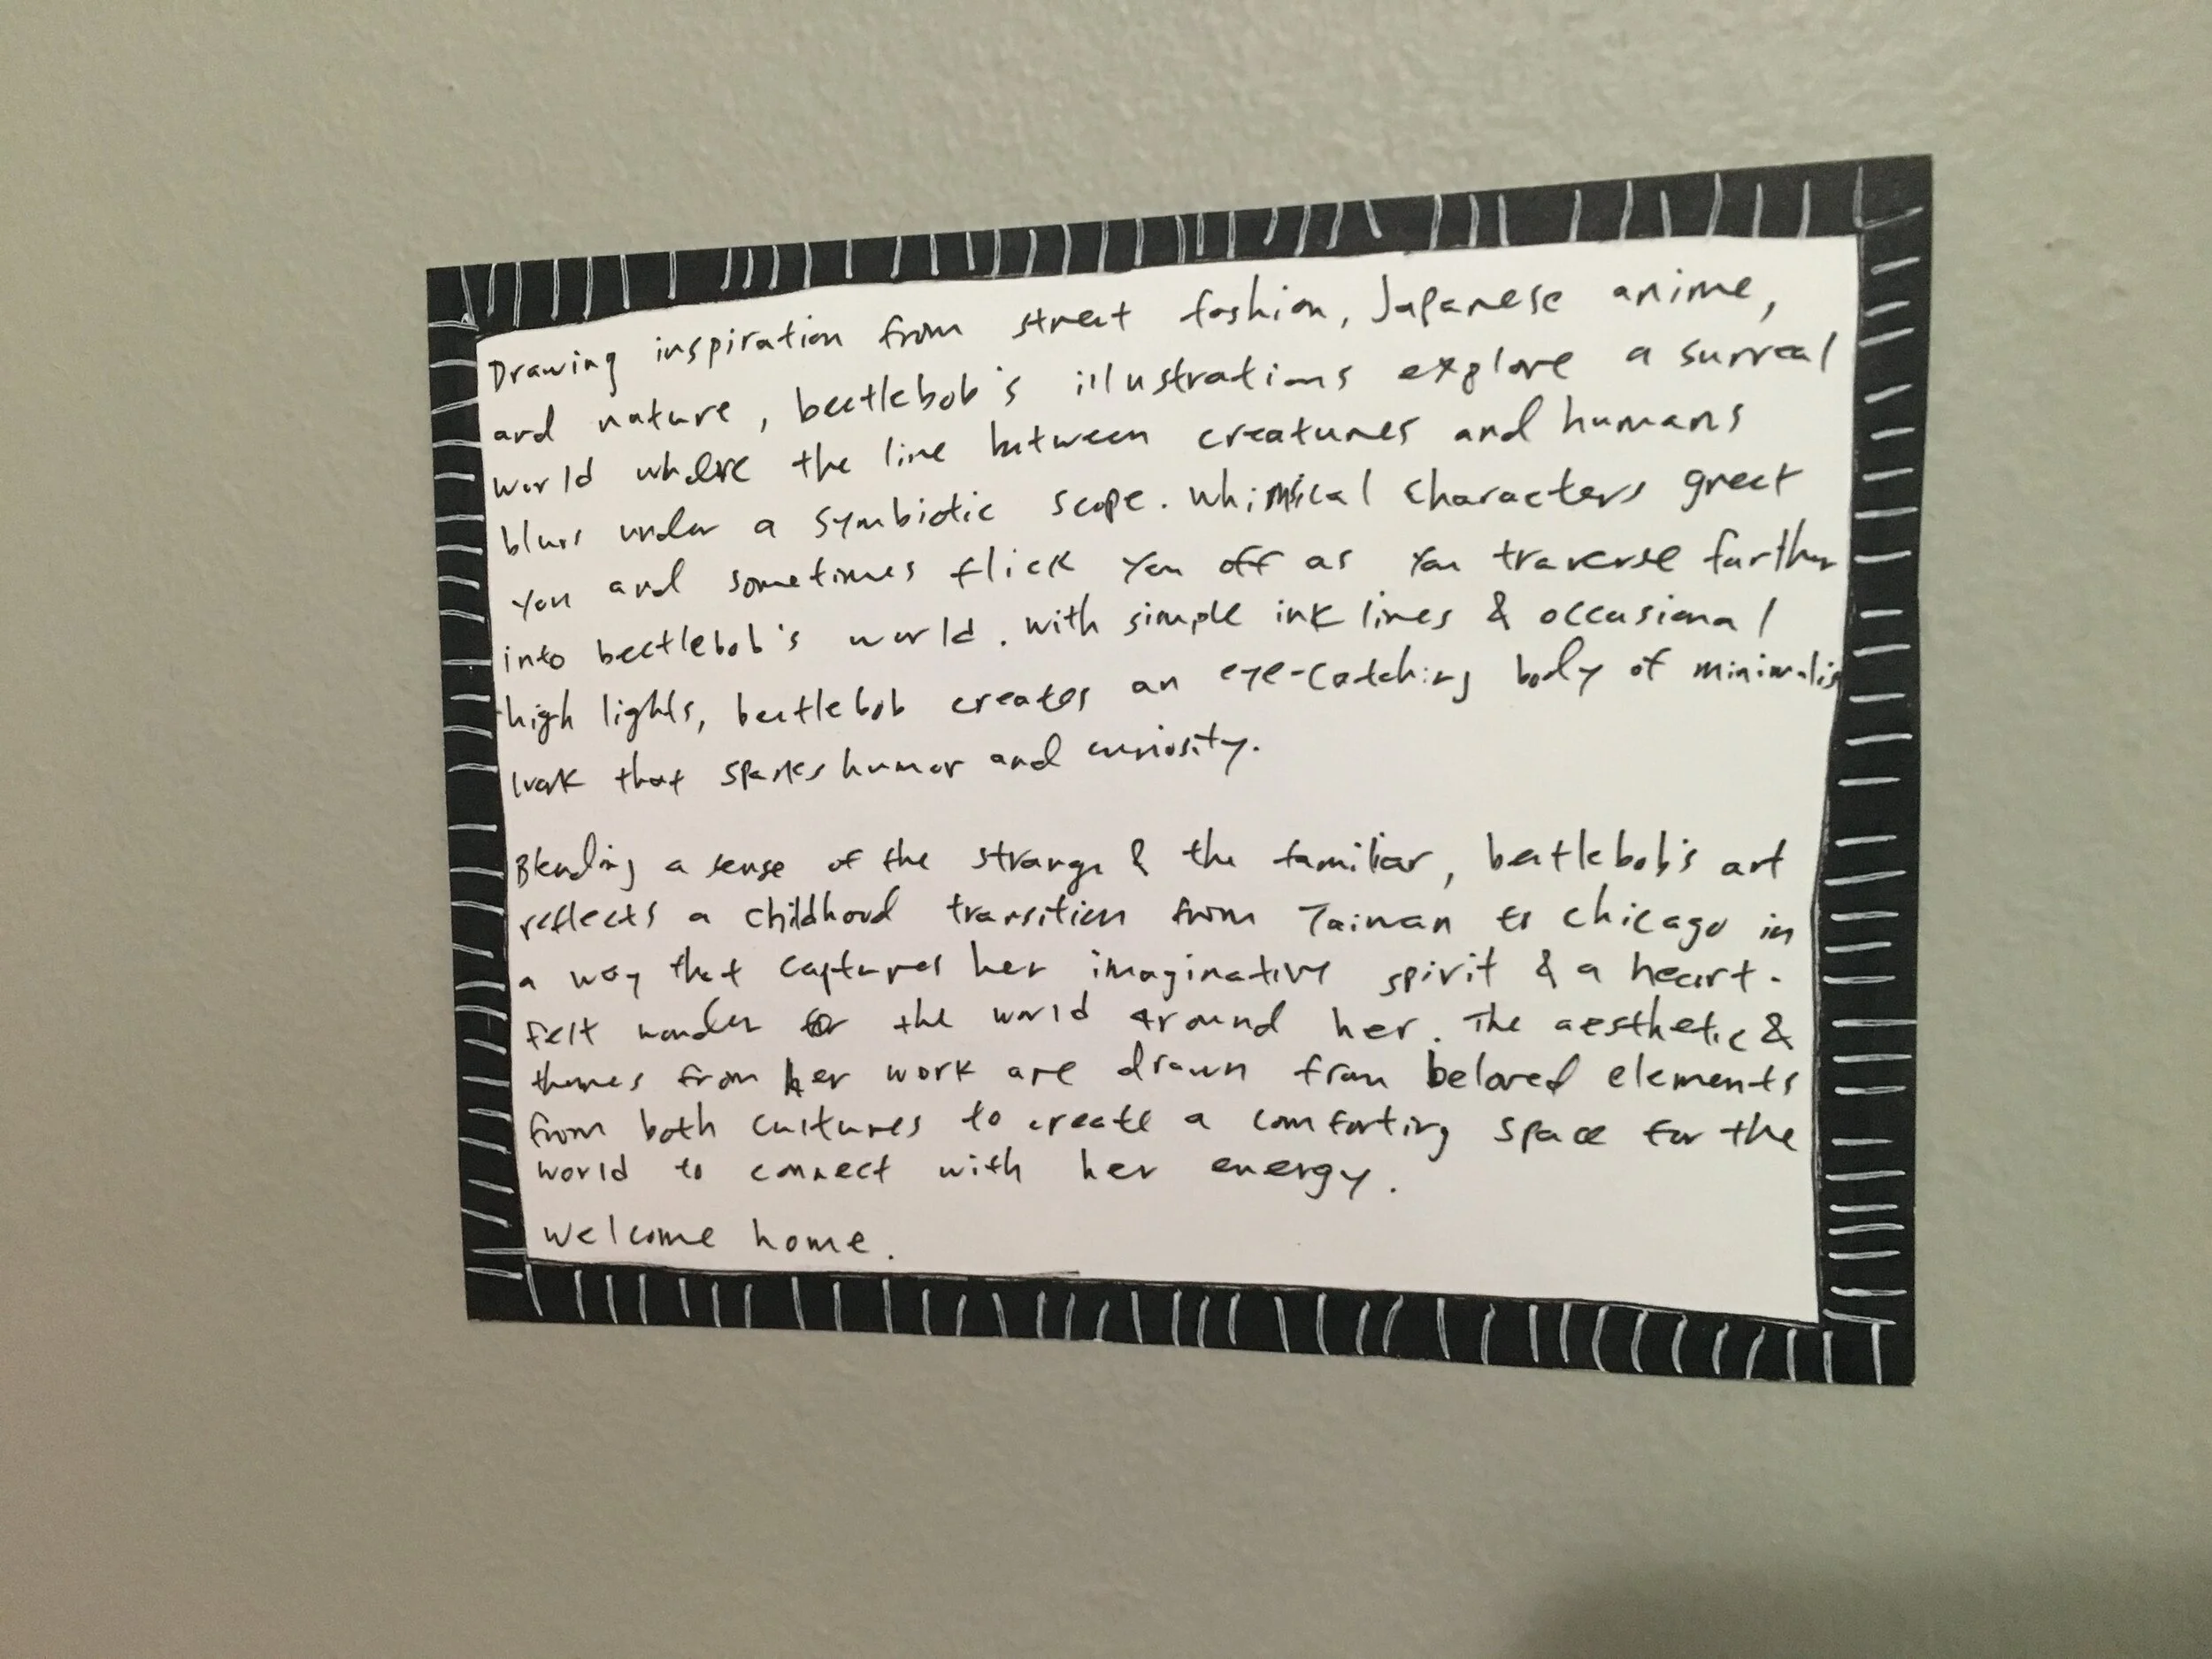 Drawing inspiration from street fashion, Japanese anime,
and nature, beetlebob's illustrations explore a surreal
world where the line between creatures and humans
blurs under a symbiotic scope. Whimsical characters greet
you and sometimes flick you off as you traverse further
into beetlebob's world. With simple ink lines & occasional
high lights, beetlebob creates an eye-catching body of minimalis
work that sparks humor and curiosity.
Blending a sense of the strange & the familiar, beetlebob's art
reflects a childhood transition from Tainan to Chicago in
a way that captures her imaginative spirit & a heart-
felt wonder for the world around her. The aesthetic &
themes from her work are drawn from beloved elements
from both cultures to create a comforting space for the
world to connect with her energy.
Welcome home.